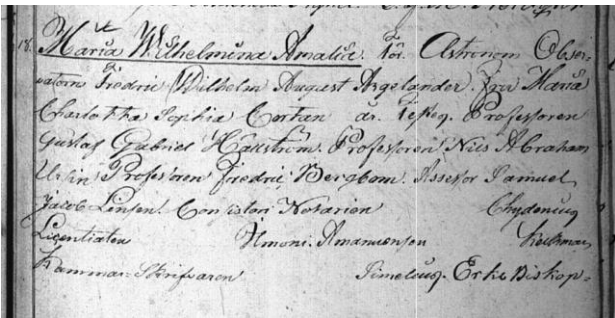 18. Maria Wilhelmina Amalia. För. Astronom Obser-
vatorn Fredric Wilhelm August Argelander. Fru Maria
Charlotta Sophia Cortan år. Test. Professoren
Gustaf Gabriel Hällström. Professoren Nils Abraham
Ursin Professoren Fredric Bergbom. Assessor Samuel
Jacob Lensen. Consistori Notarien Chydenius
Licentiaten Ilmoni. Amanuensen
Kammar-Skrifvaren Simelius. Erke Biskop-